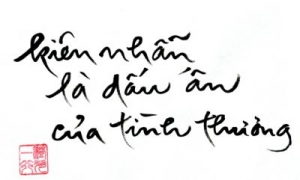 kiên nhẫn
là dấu ấn
của tình thương